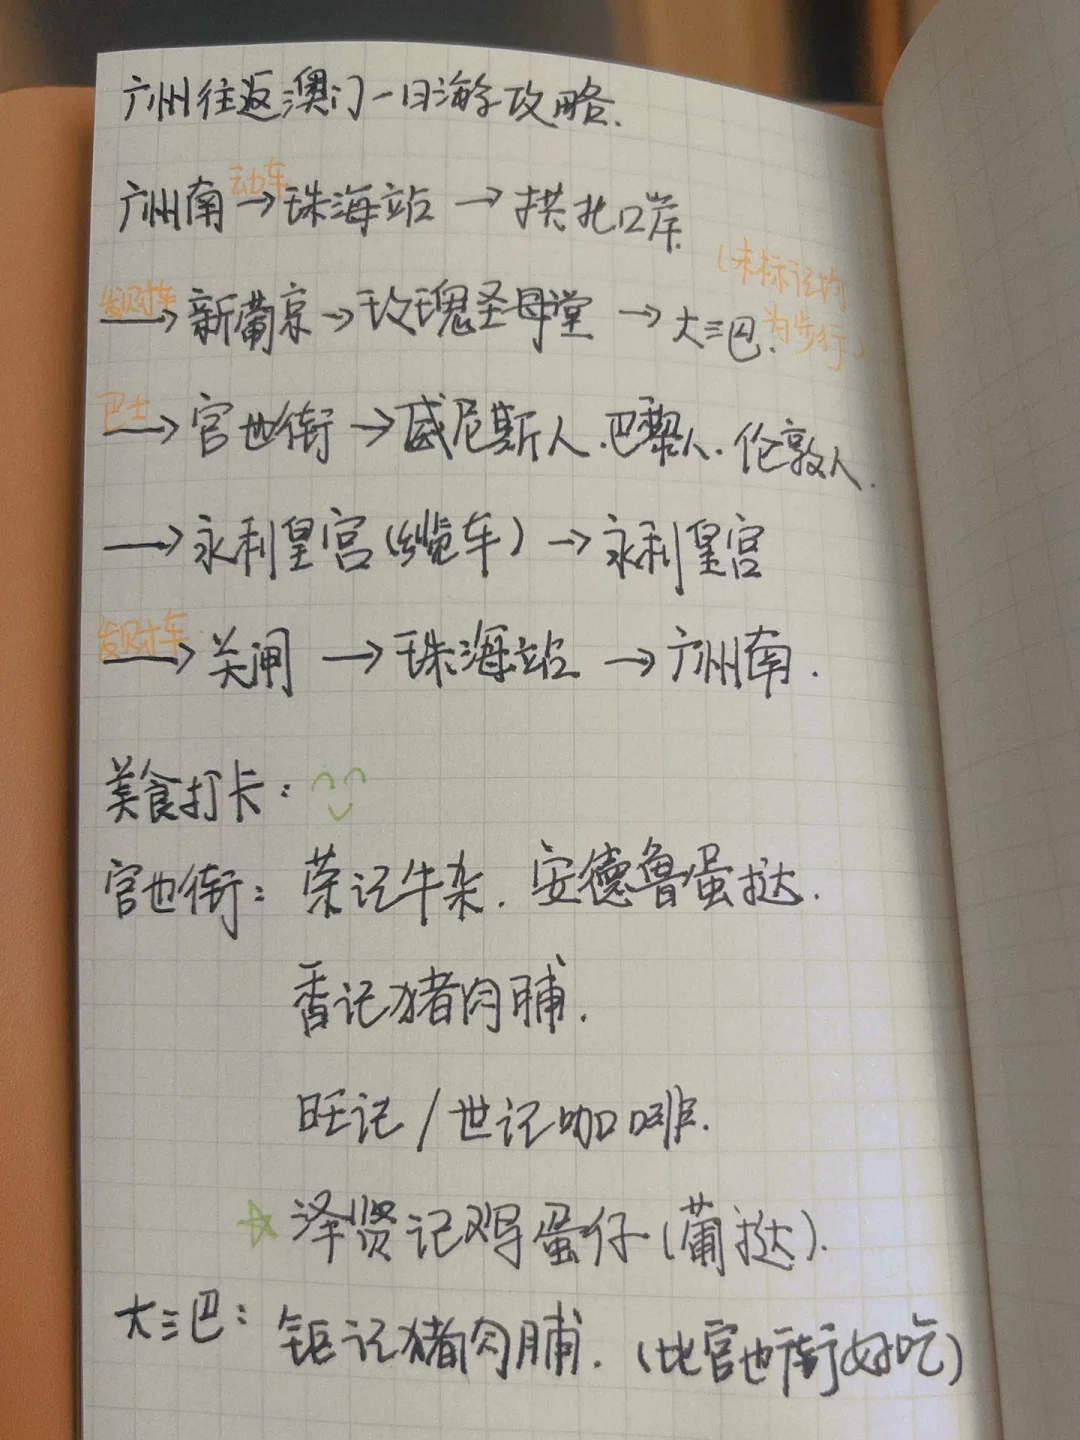 广州往返澳门一日游攻略.
广州南 动车→ 珠海站 → 拱北口岸.
发财车→ 新葡京 → 玫瑰圣母堂 → 大三巴. (未标记均为步行)
巴士→ 官也街 → 威尼斯人.巴黎人.伦敦人.
→ 永利皇宫(缆车) → 永利皇宫
发财车→ 关闸 → 珠海站 → 广州南.
美食打卡:
官也街: 荣记牛杂. 安德鲁蛋挞.
香记猪肉脯.
旺记/世记咖啡.
☆ 泽贤记鸡蛋仔(葡挞).
大三巴: 钜记猪肉脯. (比官也街好吃)